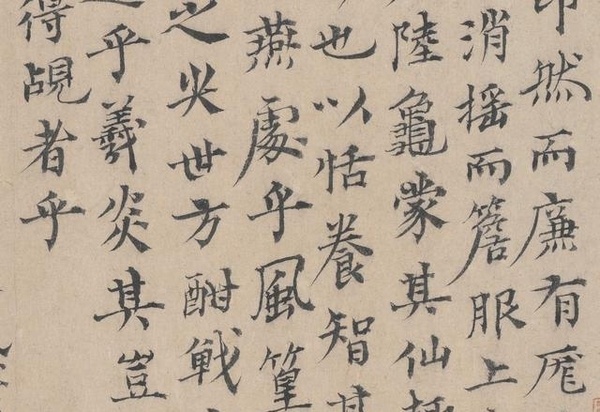 然而廉有庛
消摇而簷服上
陸龜蒙其仙
也以恬養智其
燕處乎風篁
之災世方酣戦
乎羲炎其豈
得覘者乎